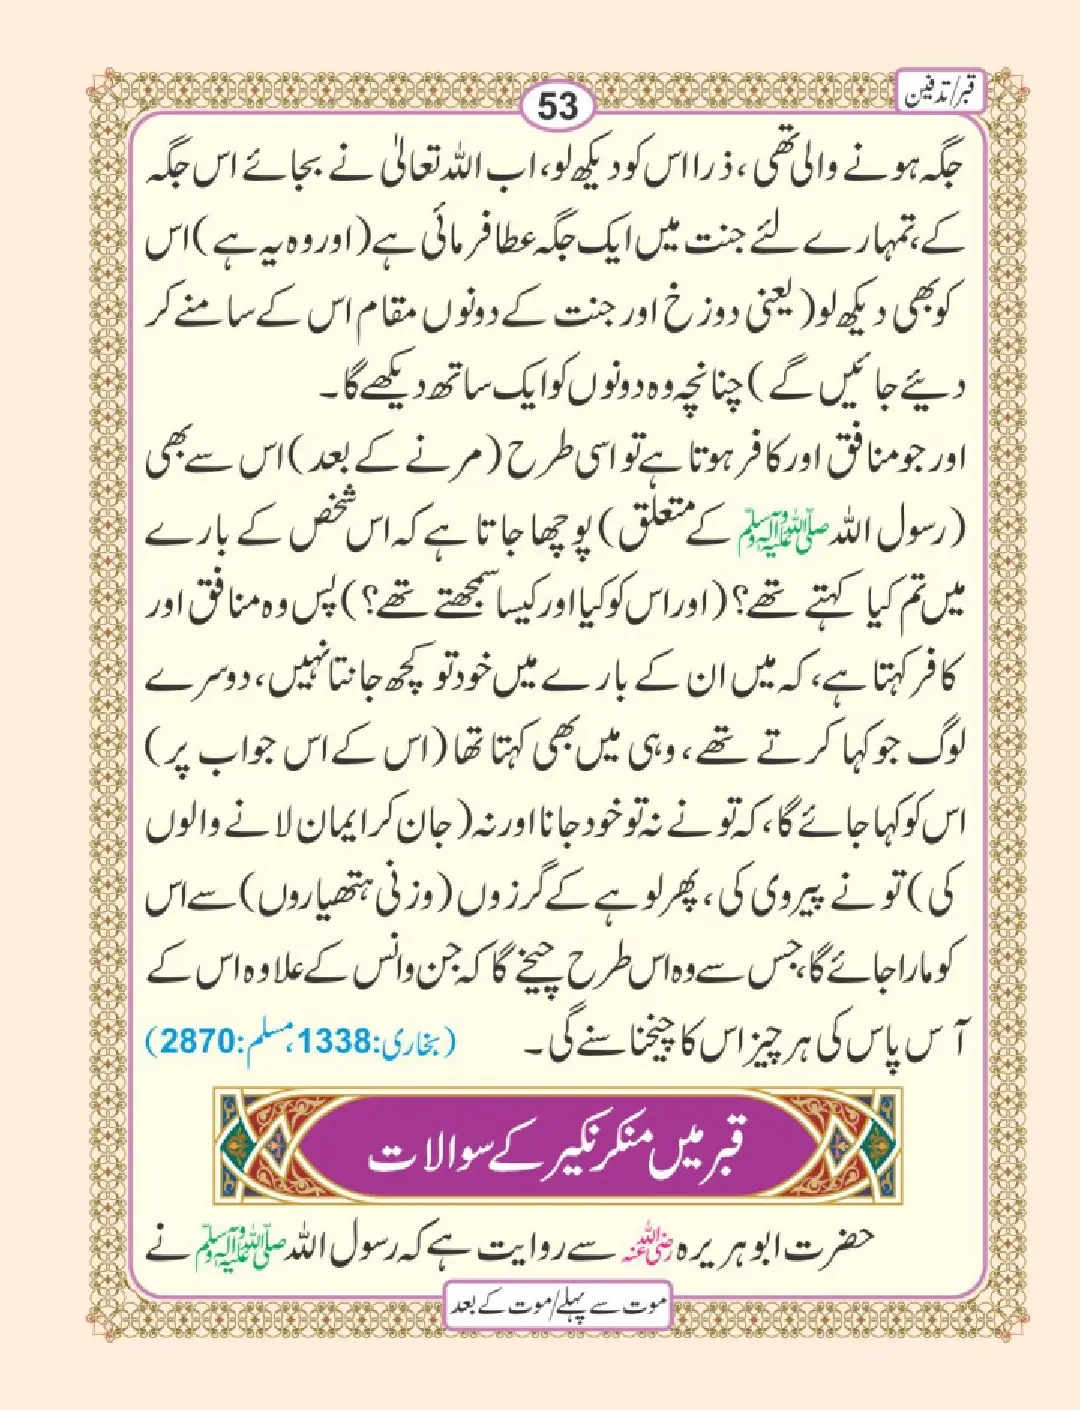 قبر/تدفین
53
جگہ ہونے والی تھی، ذرا اس کو دیکھ لو، اب اللہ تعالیٰ نے بجائے اس جگہ
کے، تمہارے لئے جنت میں ایک جگہ عطا فرمائی ہے (اور وہ یہ ہے) اس
کو بھی دیکھ لو (یعنی دوزخ اور جنت کے دونوں مقام اس کے سامنے کر
دیئے جائیں گے) چنانچہ وہ دونوں کو ایک ساتھ دیکھے گا۔
اور جو منافق اور کافر ہوتا ہے تو اسی طرح (مرنے کے بعد) اس سے بھی
(رسول اللہ صلی اللہ علیہ وآلہ وسلم کے متعلق) پوچھا جاتا ہے کہ اس شخص کے بارے
میں تم کیا کہتے تھے؟ (اور اس کو کیا اور کیسا سمجھتے تھے؟) پس وہ منافق اور
کافر کہتا ہے، کہ میں ان کے بارے میں خود تو کچھ جانتا نہیں، دوسرے
لوگ جو کہا کرتے تھے، وہی میں بھی کہتا تھا (اس کے اس جواب پر)
اس کو کہا جائے گا، کہ تو نے نہ تو خود جانا اور نہ (جان کر ایمان لانے والوں
کی) تو نے پیروی کی، پھر لوہے کے گرزوں (وزنی ہتھیاروں) سے اس
کو مارا جائے گا، جس سے وہ اس طرح چیخے گا کہ جن وانس کے علاوہ اس کے
آس پاس کی ہر چیز اس کا چیخنا سنے گی۔ (بخاری:1338، مسلم:2870)
قبر میں منکر نکیر کے سوالات
حضرت ابو ہریرہ رضی اللہ عنہ سے روایت ہے کہ رسول اللہ صلی اللہ علیہ وآلہ وسلم نے
موت سے پہلے/موت کے بعد